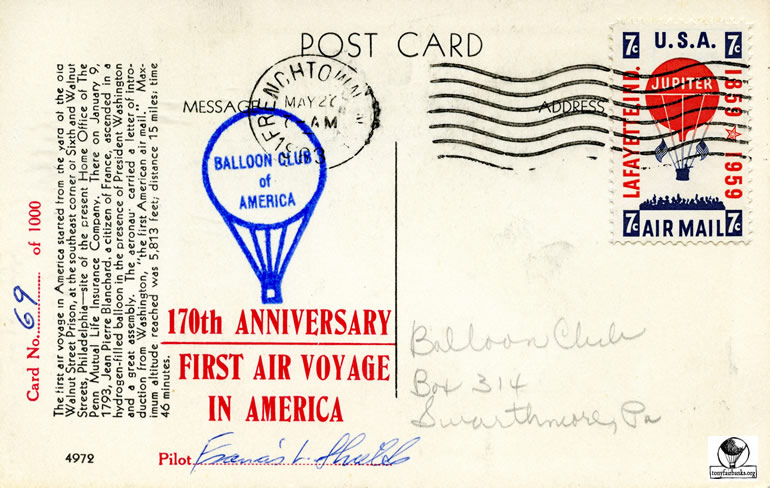 POST CARD
MESSAGE
ADDRESS
FRENCHTOWN
MAY 27
AM
1963
7c U.S.A. 7c
LAFAYETTE, IND.
JUPITER
1859 ☆ 1959
7c AIR MAIL 7c
BALLOON CLUB
of
AMERICA
170th ANNIVERSARY
FIRST AIR VOYAGE
IN AMERICA
Pilot Francis L. Shields
4972
Card No. 69 of 1000
The first air voyage in America started from the yard of the old
Walnut Street Prison, at the southeast corner of Sixth and Walnut
Streets, Philadelphia—site of the present Home Office of The
Penn Mutual Life Insurance Company. There on January 9,
1793, Jean Pierre Blanchard, a citizen of France, ascended in a
hydrogen-filled balloon in the presence of President Washington
and a great assembly. The aeronaut carried a letter of intro-
duction from Washington, "the first American air mail." Max-
imum altitude reached was 5,813 feet; distance 15 miles; time
46 minutes.
Balloon Club
Box 314
Swarthmore, Pa
tonyfairbanks.org